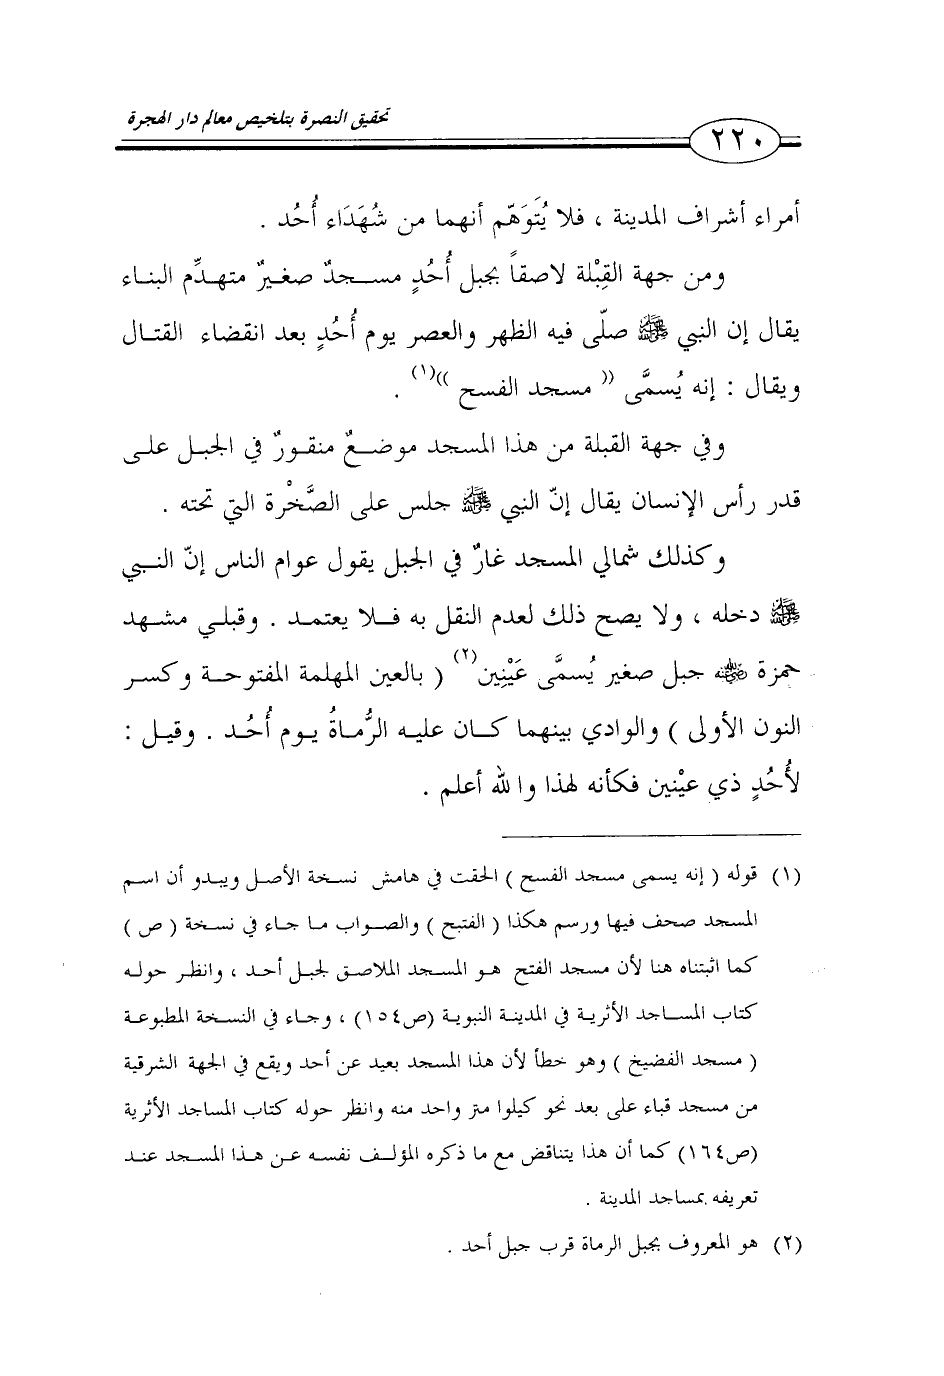 تحقيق النصرة بتلخيص معالم دار الهجرة
٢٢٠
أمراء أشراف المدينة ، فلا يُتَوَهّم أنهما من شُهَدَاء أُحُد .
ومن جهة القِبْلة لاصقاً بجبل أُحُدٍ مسجدٌ صغيرٌ متهدِّم البناء
يقال إن النبي ﷺ صلّى فيه الظهر والعصر يوم أُحُدٍ بعد انقضاء القتال
ويقال : إنه يُسمَّى (( مسجد الفسح ))(١) .
وفي جهة القبلة من هذا المسجد موضعٌ منقورٌ في الجبل على
قدر رأس الإنسان يقال إنّ النبي ﷺ جلس على الصَّخْرة التي تحته .
وكذلك شمالي المسجد غارٌ في الجبل يقول عوام الناس إنّ النبي
ﷺ دخله ، ولا يصح ذلك لعدم النقل به فلا يعتمد . وقبلي مشهد
حمزة رضي الله عنه جبل صغير يُسمَّى عَيْنِين(٢) ( بالعين المهلمة المفتوحة وكسر
النون الأولى ) والوادي بينهما كان عليه الرُّماةُ يوم أُحُد . وقيل :
لأُحُدٍ ذي عيْنين فكأنه لهذا والله أعلم .
(١) قوله ( إنه يسمى مسجد الفسح ) الحقت في هامش نسخة الأصل ويبدو أن اسم
المسجد صحف فيها ورسم هكذا ( الفتبح ) والصواب ما جاء في نسخة ( ص )
كما اثبتناه هنا لأن مسجد الفتح هو المسجد الملاصق لجبل أحد ، وانظر حوله
كتاب المساجد الأثرية في المدينة النبوية (ص١٥٤) ، وجاء في النسخة المطبوعة
( مسجد الفضيخ ) وهو خطأ لأن هذا المسجد بعيد عن أحد ويقع في الجهة الشرقية
من مسجد قباء على بعد نحو كيلوا متر واحد منه وانظر حوله كتاب المساجد الأثرية
(ص١٦٤) كما أن هذا يتناقض مع ما ذكره المؤلف نفسه عن هذا المسجد عند
تعريفه بمساجد المدينة .
(٢) هو المعروف بجبل الرماة قرب جبل أحد .